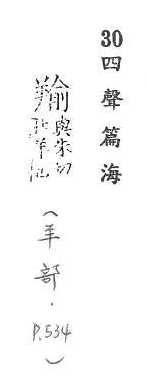 30 四聲篇海
羭 與朱切
羊也
(羊部.P.534)